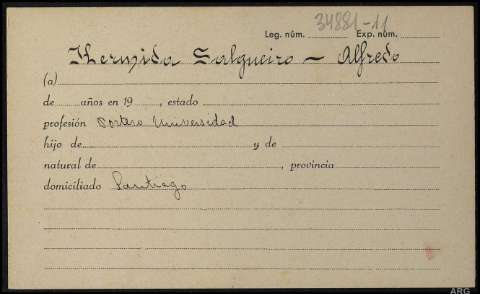 34881-11
Leg. núm. Exp. núm.
Hermida Salgueiro - Alfredo
(a)
de años en 19 , estado
profesión Portero Universidad
hijo de y de
natural de , provincia
domiciliado Santiago
ARG